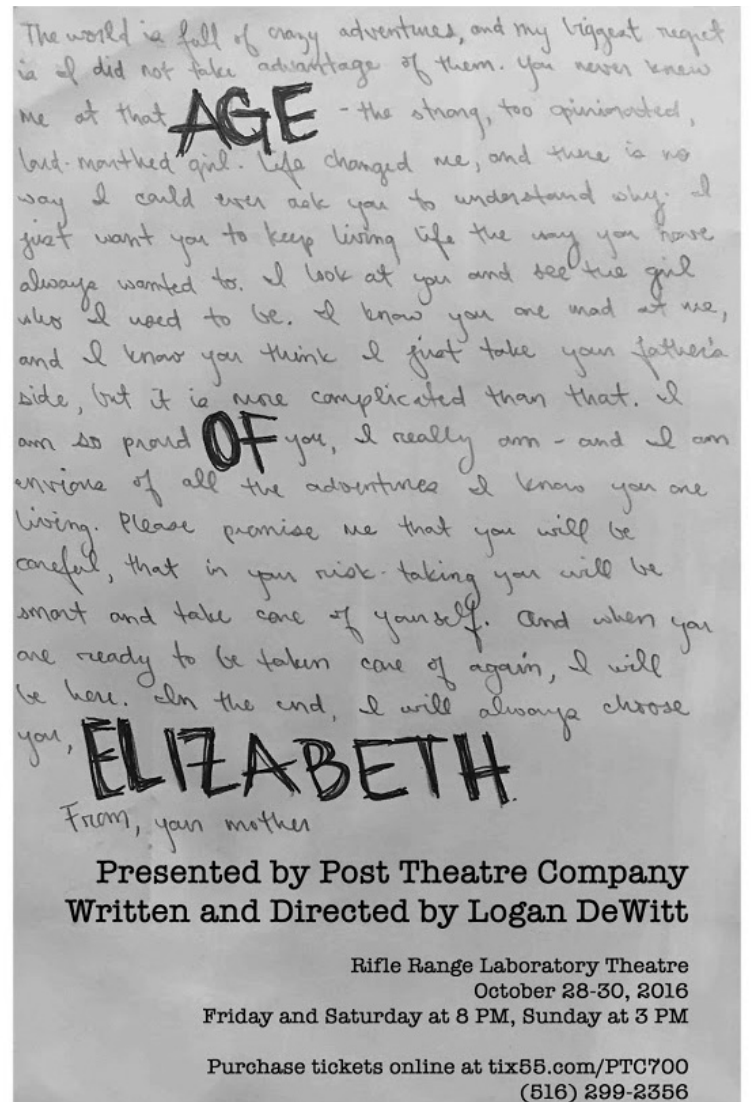 The world is full of crazy adventures, and my biggest regret
is I did not take advantage of them. You never knew
me at that AGE - the strong, too opinionated,
loud-mouthed girl. Life changed me, and there is no
way I could ever ask you to understand why. I
just want you to keep living life the way you have
always wanted to. I look at you and see the girl
who I used to be. I know you are mad at me,
and I know you think I just take your father's
side, but it is more complicated than that. I
am so proud OF you, I really am - and I am
envious of all the adventures I know you are
living. Please promise me that you will be
careful, that in your risk-taking you will be
smart and take care of yourself. And when you
are ready to be taken care of again, I will
be here. In the end, I will always choose
you, ELIZABETH.
From, your mother
Presented by Post Theatre Company
Written and Directed by Logan DeWitt
Rifle Range Laboratory Theatre
October 28-30, 2016
Friday and Saturday at 8 PM, Sunday at 3 PM
Purchase tickets online at tix55.com/PTC700
(516) 299-2356